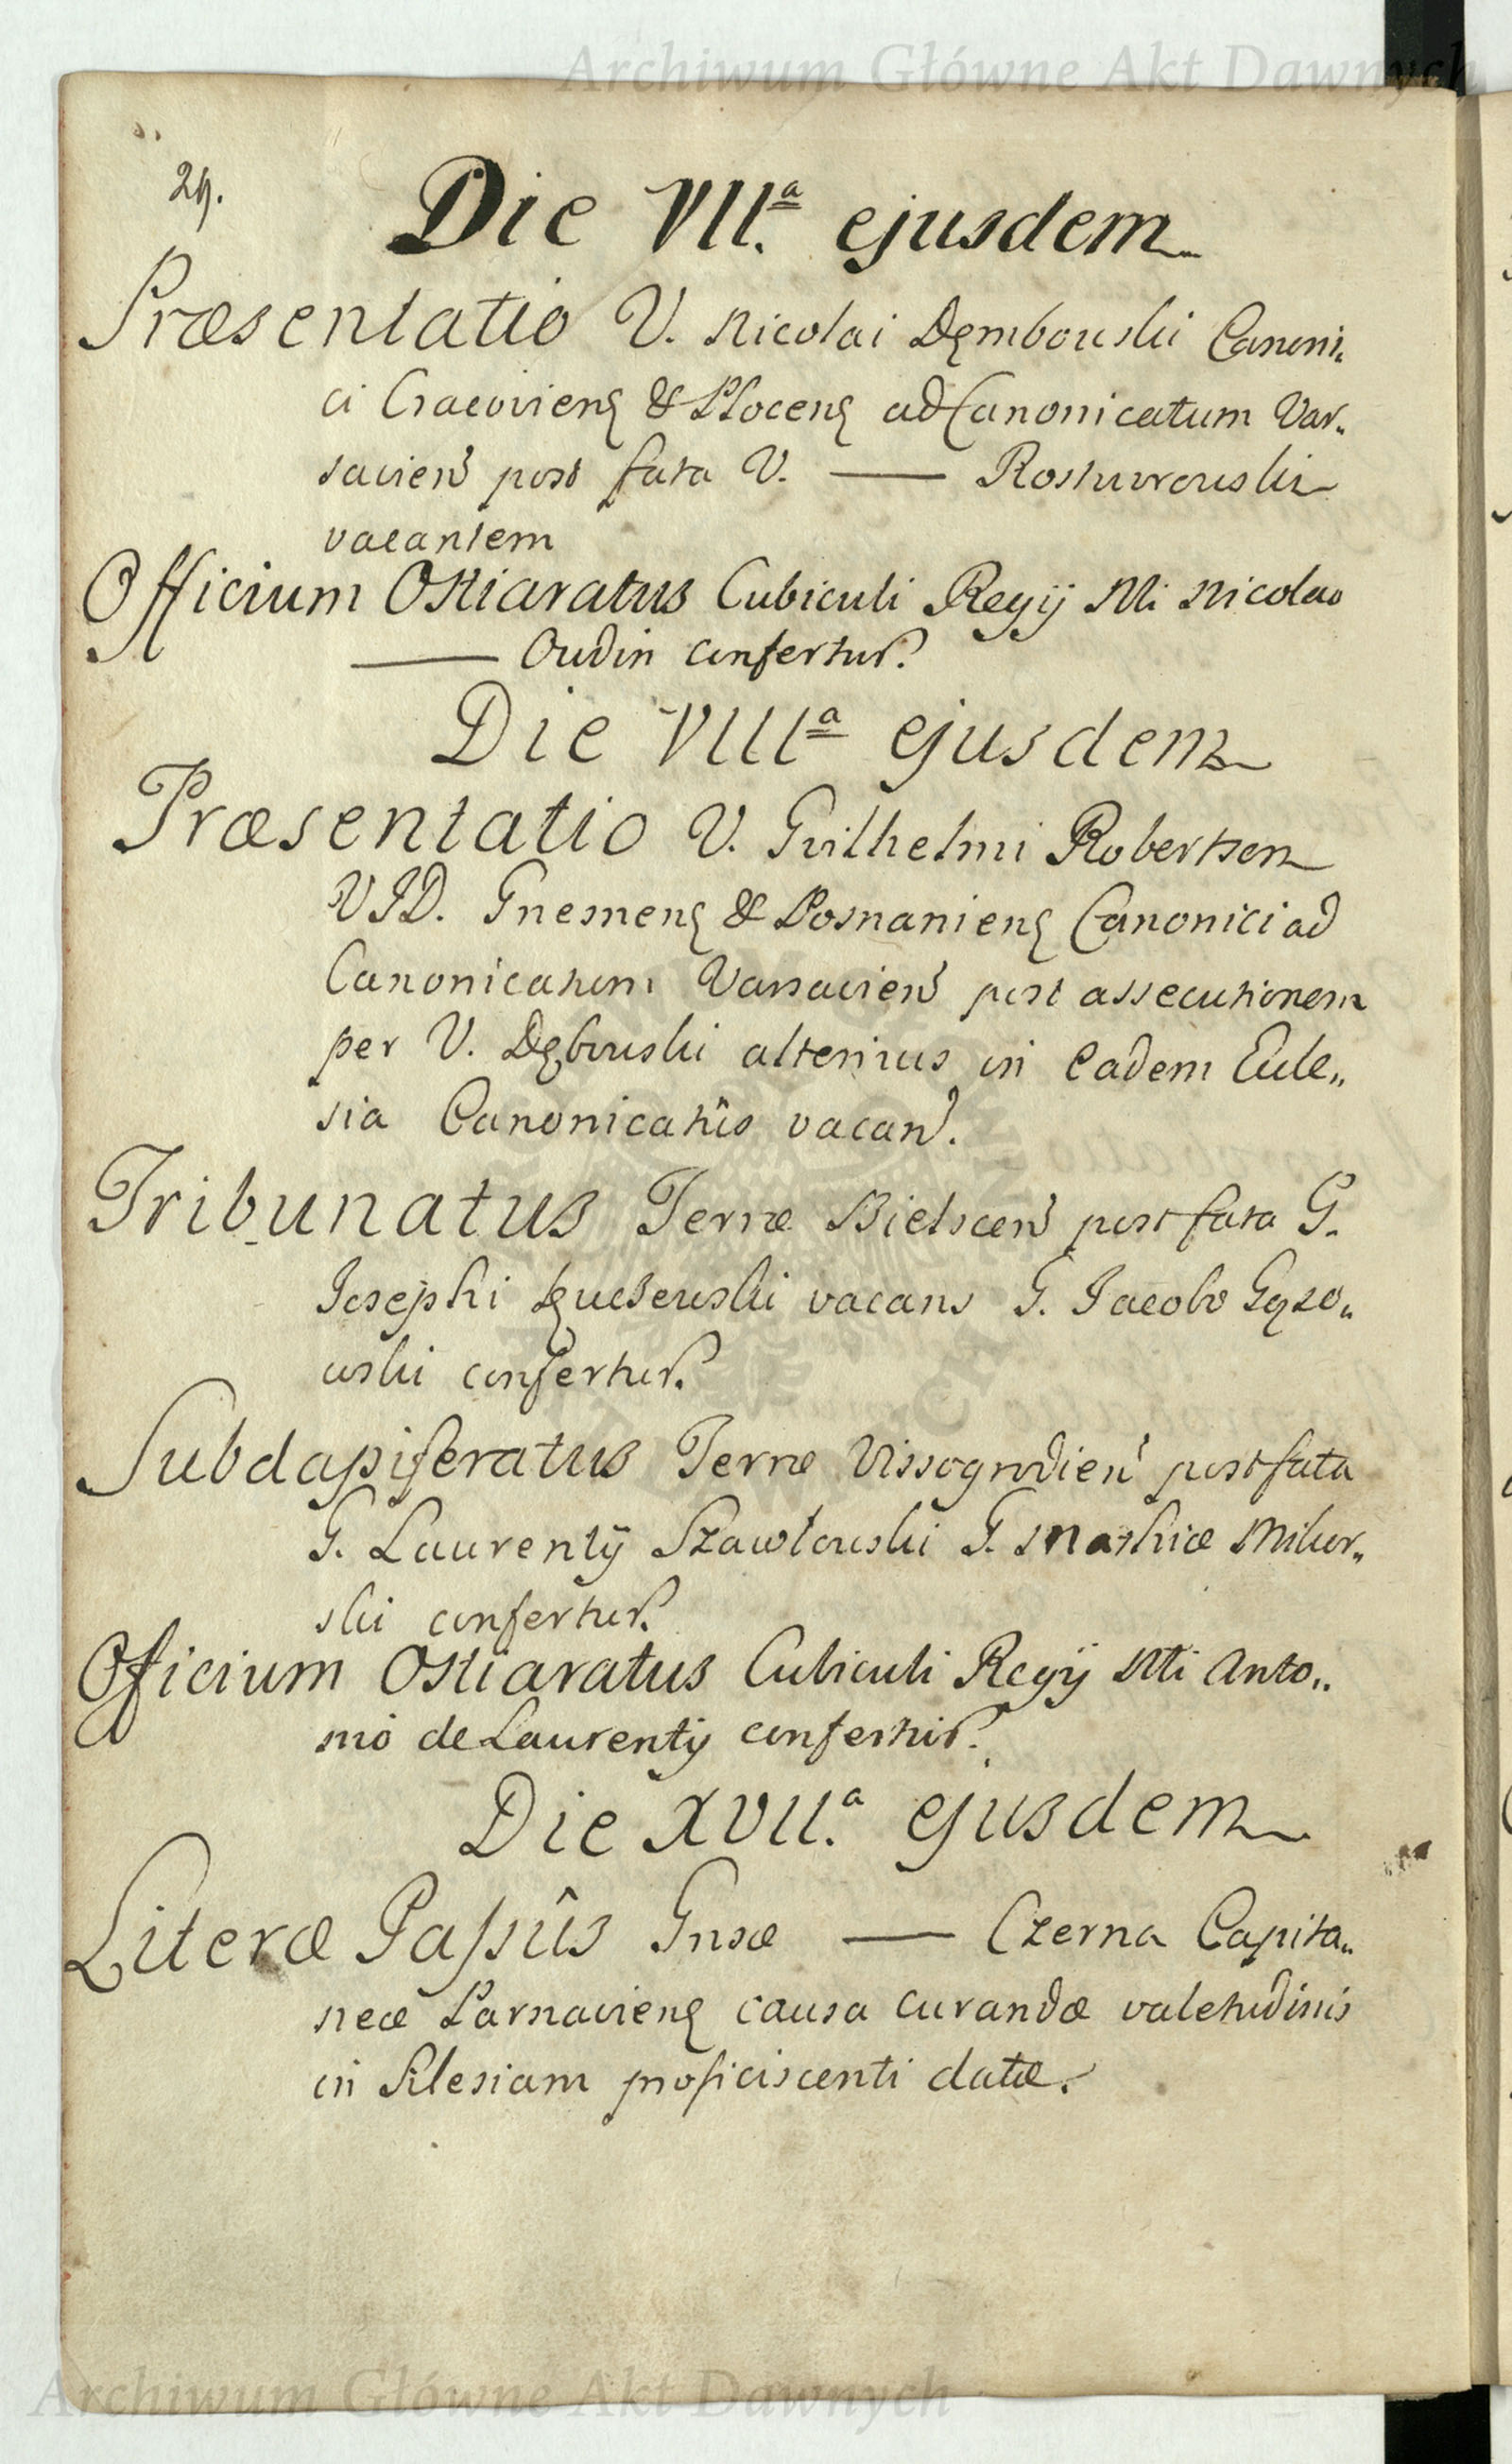 Archiwum Główne Akt Dawnych
29.
Die VII.ª ejusdem
Præsentatio V. Nicolai Dęmbowski Canoni„
ci Cracovieng & Ploceng ad Canonicatum Var„
savien post fata V. — Rostworowski
vacantem
Officium Ostiaratus Cubiculi Regij Mi Nicolao
— Oudin confertur.
Die VIIIª ejusdem
Præsentatio V. Guilhelmi Robertson
VJD. Gnesneng & Posnanieng Canonici ad
Canonicatum Varsavien post assecutionem
per V. Dębowski alterius in eadem Eccle„
sia Canonicatûs vacan.
Tribunatus Terræ Bielscen post fata G.
Josephi vacans G. Jacobo
wski confertur.
Subdapiferatus Terræ Vissogrodien post fata
G. Laurentij Szawłowski G. Mathiæ Milw„
ski confertur.
Officium Ostiaratus Cubiculi Regij Mi Anto„
nio de Laurentij confertur.
Die XVII.ª ejusdem
Literæ Passûs Gnsæ — Czerna Capita„
neæ Parnavieng causa curandæ valetudinis
in Silesiam proficiscenti datæ.
Archiwum Główne Akt Dawnych